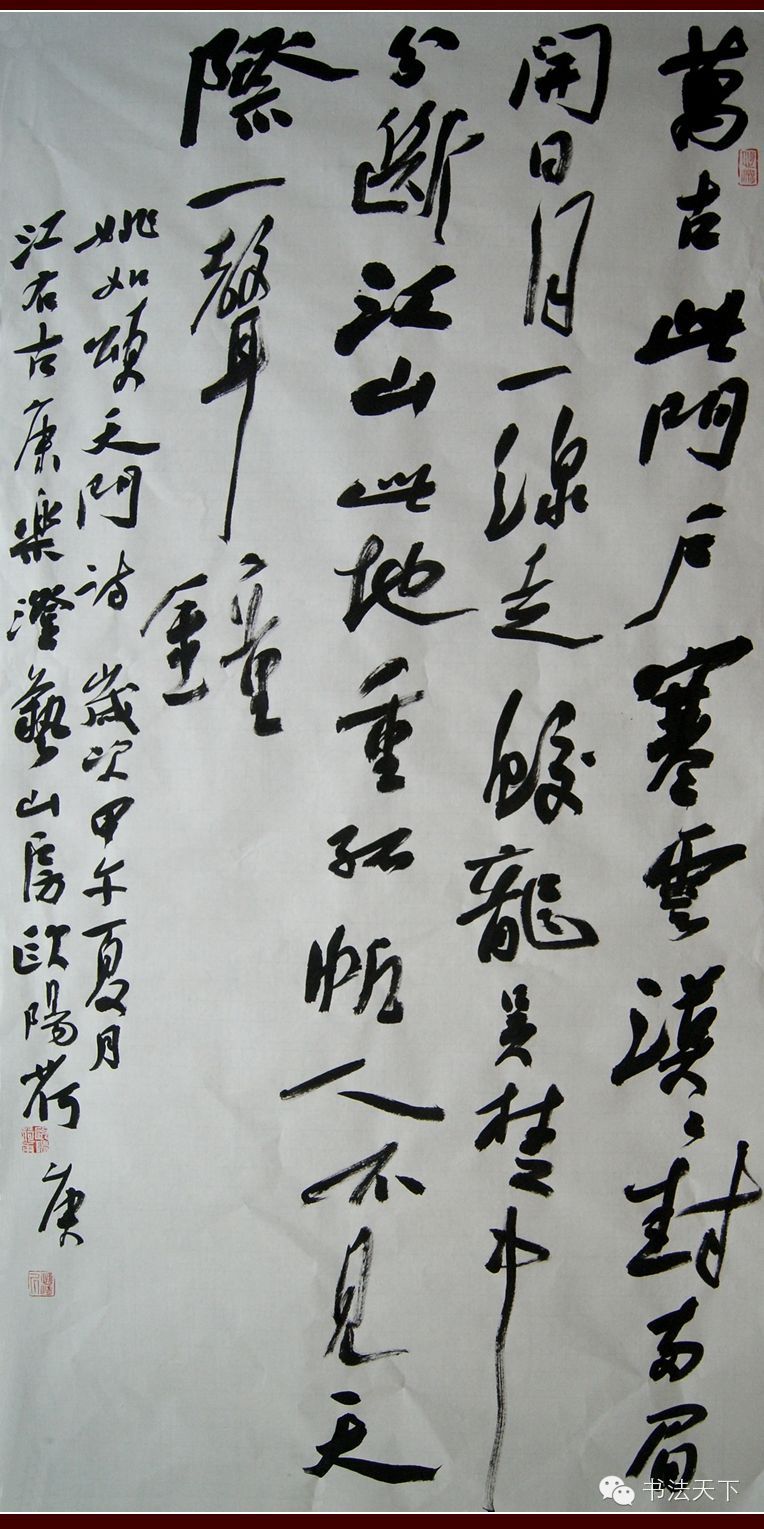 萬古此門戶寒雲漠漠封兩眉
開日月一線走蛟龍吳楚中
分斷江山此地重孤帆人不見天
際一聲鐘
姚如頌天門詩 歲次甲午夏月
江右古康樂澄藝山房歐陽荷庚
书法天下